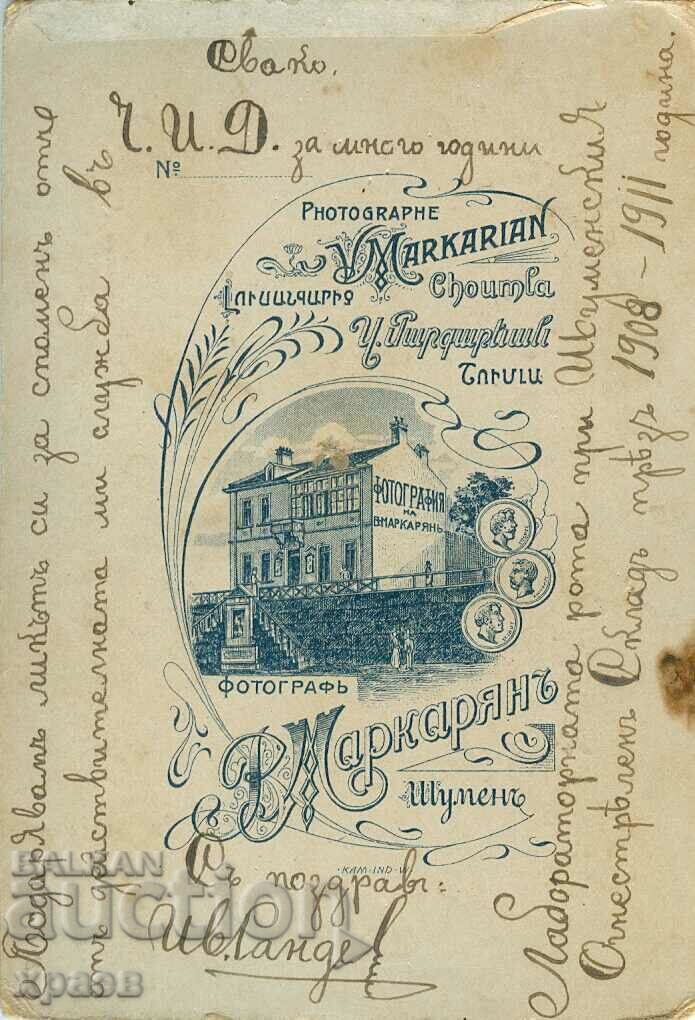 Свако.
Ч. И. Д. за много години
№
PHOTOGRAPHE
V. MARKARIAN
Լուսանկարիչ Choumla
Վ. Մարգարեան
Շումլա
ФОТОГРАФИЯ
НА
В. МАРКАРЯНЪ
ФОТОГРАФЪ
В. Маркарянъ
Шуменъ
KAM·IND·W.
Подарявамъ ликътъ си за споменъ отъ
действителната ми служба въ
Лабораторната рота при Шуменския
Огнестрѣленъ Складъ прѣзъ 1908 – 1911 година.
Съ поздравъ:
BALKAN
auction
храов